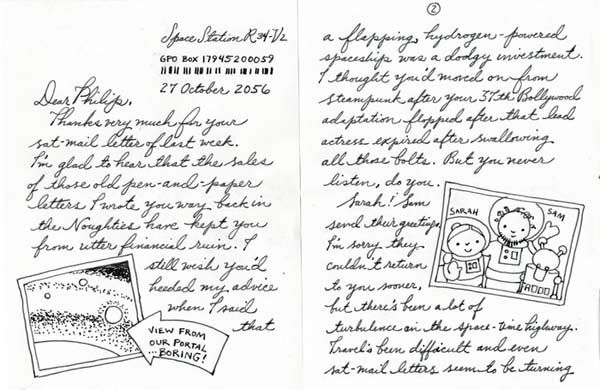 Space Station R34-V2
GPO BOX 17945200059
27 October 2056
Dear Philip,
Thanks very much for your
sat-mail letter of last week.
I'm glad to hear that the sales
of those old pen-and-paper
letters I wrote you way back in
the Noughties have kept you
from utter financial ruin. I
still wish you'd
heeded my advice
when I said
that
VIEW FROM
OUR PORTAL
...BORING!
2
a flapping, hydrogen-powered
spaceship was a dodgy investment.
I thought you'd moved on from
steampunk after your 37th Bollywood
adaptation flopped after that lead
actress expired after swallowing
all those bolts. But you never
listen, do you.
Sarah & Sam
send their greetings.
I'm sorry they
couldn't return
to you sooner,
but there's been a lot of
turbulence on the space-time highway.
Travel's been difficult and even
sat-mail letters seem to be turning
SARAH
SAM